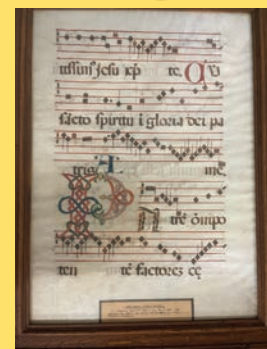 tissim Jesu xp̄ te. Cū
sācto spiritu ī gloria dei pa
tris. A me.
P trē oīmpo
ten tē factorez ce